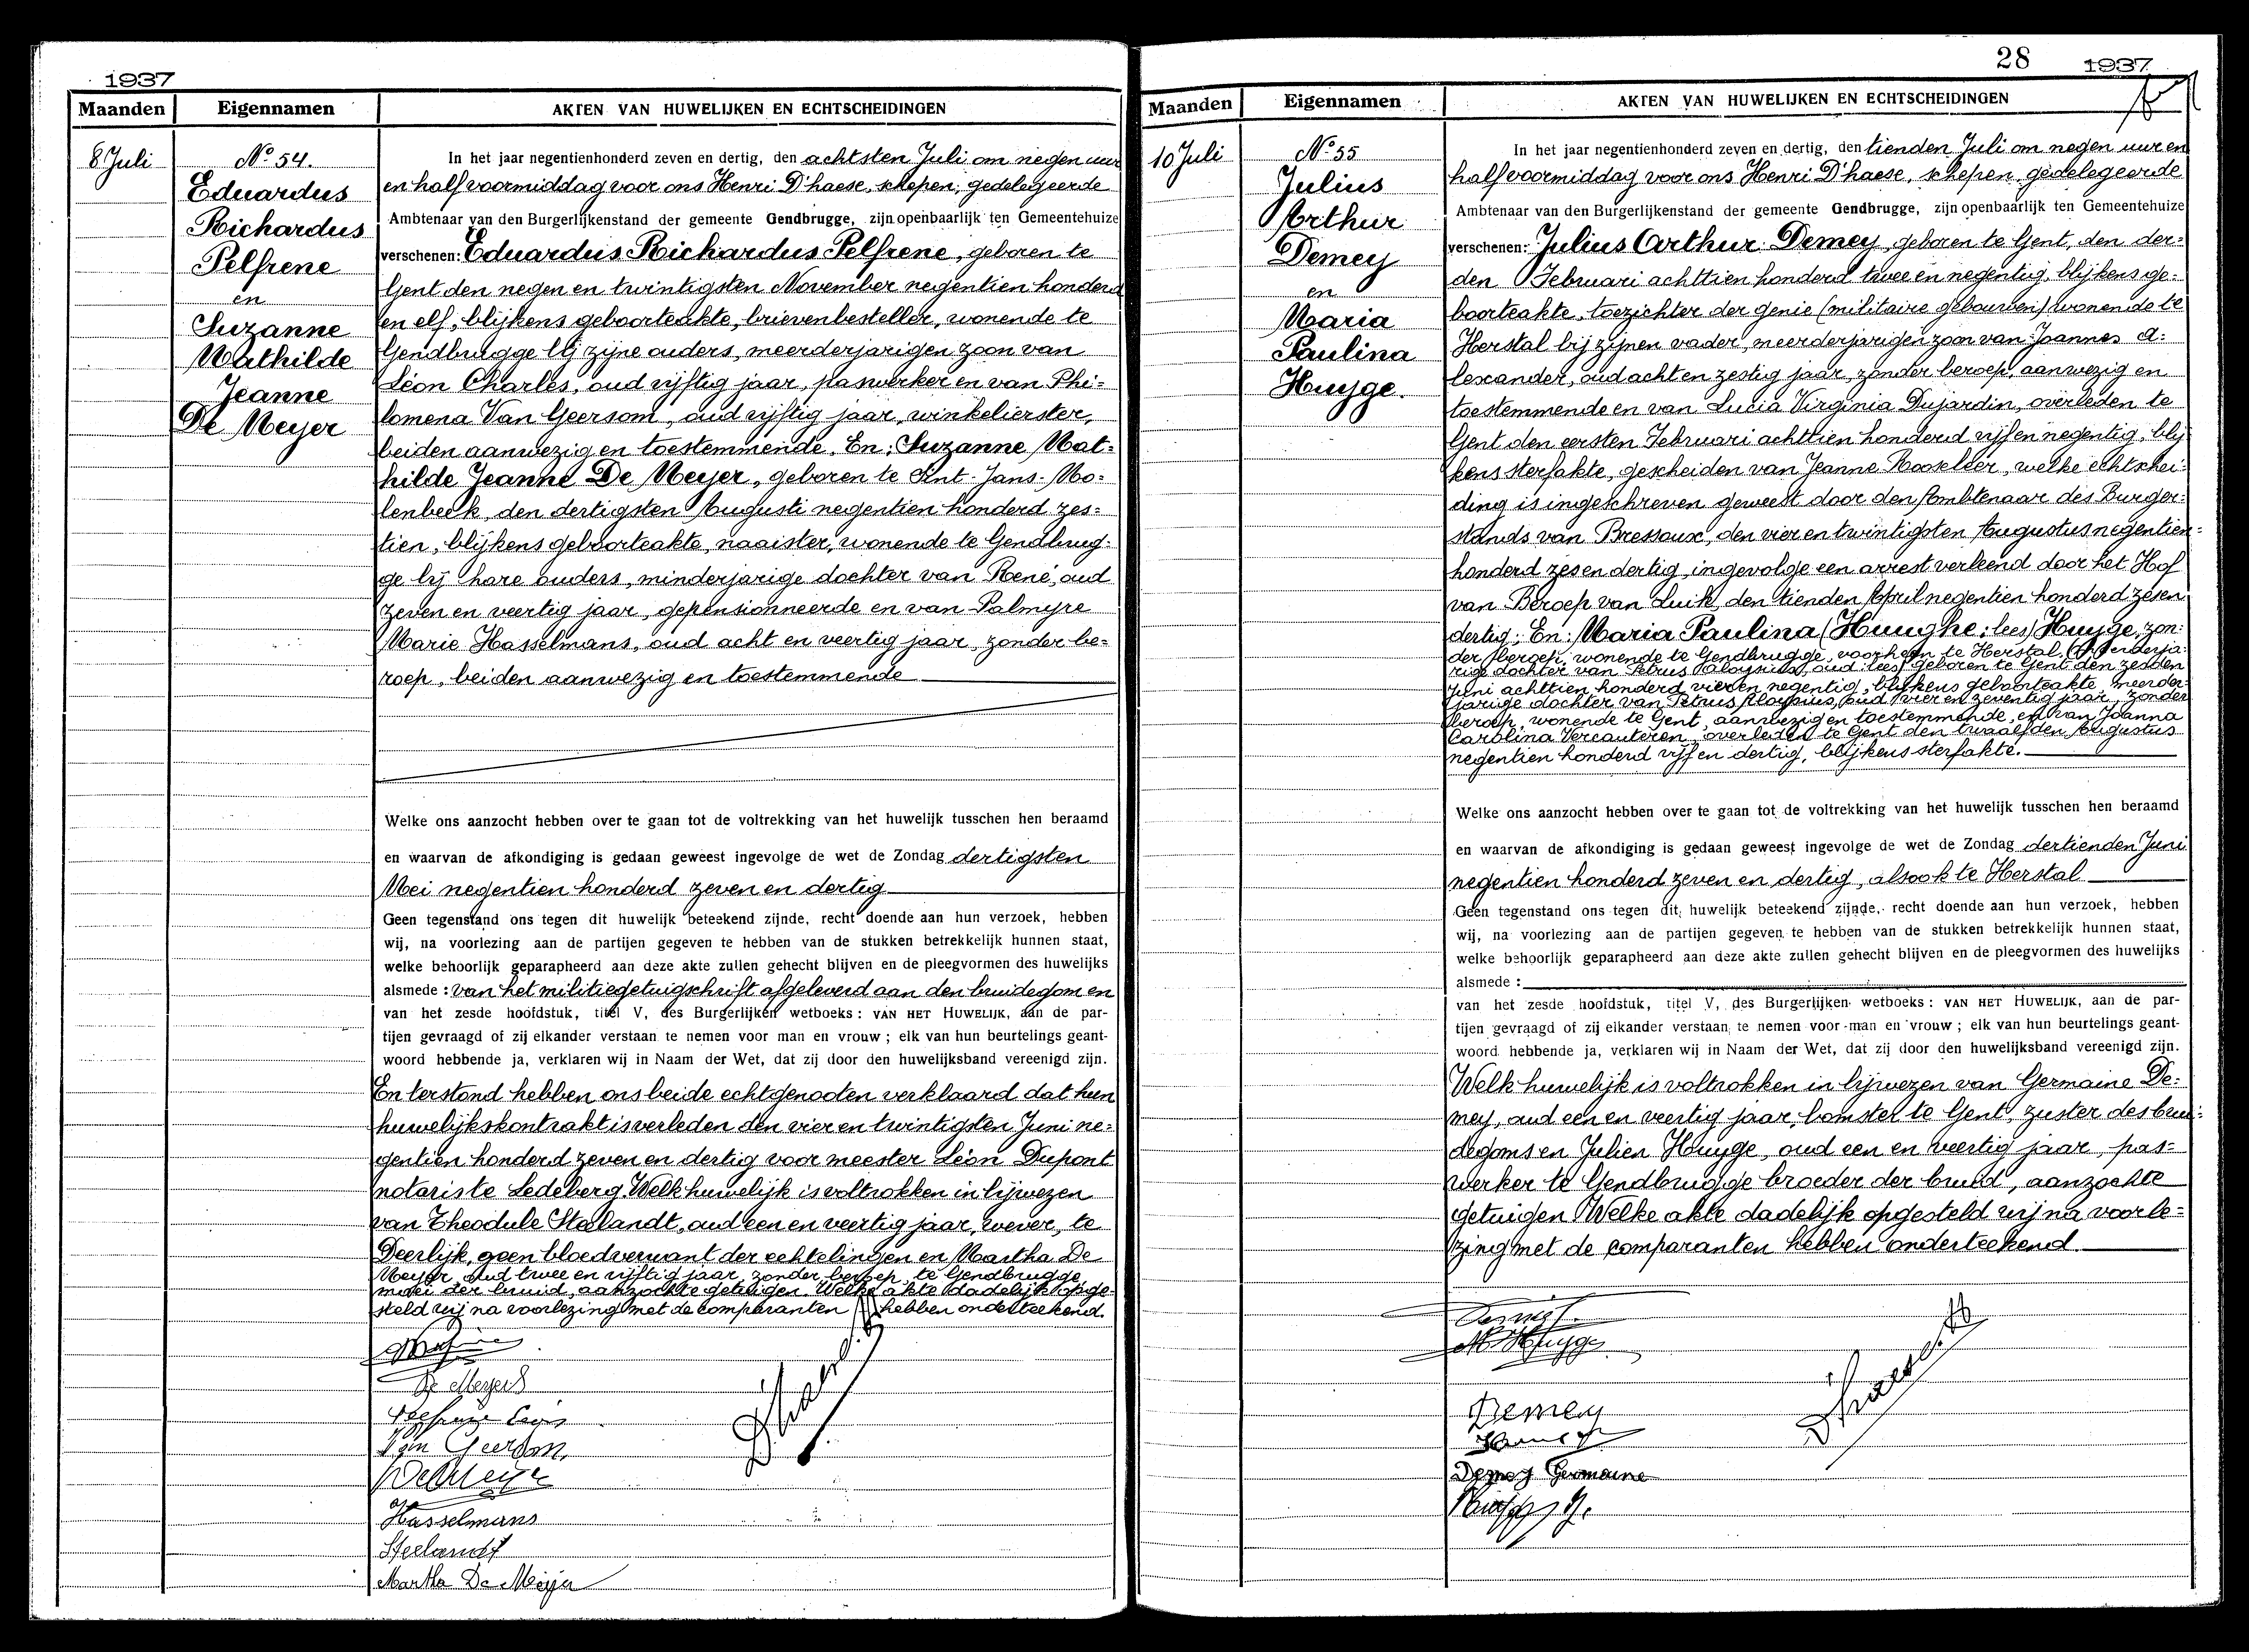 1937
Maanden Eigennamen AKTEN VAN HUWELIJKEN EN ECHTSCHEIDINGEN
8 Juli
No 54.
Eduardus
Richardus
Pelfrene
en
Suzanne
Mathilde
Jeanne
De Meyer
In het jaar negentienhonderd zeven en dertig, den achtsten Juli om negen uur
en half voormiddag voor ons Henri D'haese, schepen, gedelegeerde
Ambtenaar van den Burgerlijkenstand der gemeente Gendbrugge, zijn openbaarlijk ten Gemeentehuize
verschenen: Eduardus Richardus Pelfrene, geboren te
Gent den negen en twintigsten November negentien honderd
en elf, blijkens geboorteakte, brievenbesteller, wonende te
Gendbrugge bij zijne ouders, meerderjarigen zoon van
Léon Charles, oud vijftig jaar, paswerker en van Phi=
lomena Van Geersom, oud vijftig jaar, winkelierster,
beiden aanwezig en toestemmende. En: Suzanne Mat=
hilde Jeanne De Meyer, geboren te Sint-Jans-Mo=
lenbeek, den dertigsten Augusti negentien honderd zes=
tien, blijkens geboorteakte, naaister, wonende te Gendbrug=
ge bij hare ouders, minderjarige dochter van René, oud
zeven en veertig jaar, gepensionneerde en van Palmyre
Marie Hasselmans, oud acht en veertig jaar, zonder be=
roep, beiden aanwezig en toestemmende
Welke ons aanzocht hebben over te gaan tot de voltrekking van het huwelijk tusschen hen beraamd
en waarvan de afkondiging is gedaan geweest ingevolge de wet de Zondag dertigsten
Mei negentien honderd zeven en dertig
Geen tegenstand ons tegen dit huwelijk beteekend zijnde, recht doende aan hun verzoek, hebben
wij, na voorlezing aan de partijen gegeven te hebben van de stukken betrekkelijk hunnen staat,
welke behoorlijk geparapheerd aan deze akte zullen gehecht blijven en de pleegvormen des huwelijks
alsmede: van het militiegetuigschrift afgeleverd aan den bruidegom en
van het zesde hoofdstuk, titel V, des Burgerlijken wetboeks: VAN HET HUWELIJK, aan de par-
tijen gevraagd of zij elkander verstaan te nemen voor man en vrouw; elk van hun beurtelings geant-
woord hebbende ja, verklaren wij in Naam der Wet, dat zij door den huwelijksband vereenigd zijn.
En terstond hebben ons beide echtgenooten verklaard dat hun
huwelijkskontrakt is verleden den vier en twintigsten Juni ne=
gentien honderd zeven en dertig voor meester Léon Dupont
notaris te Ledeberg. Welk huwelijk is voltrokken in bijwezen
van Theodule Steelandt, oud een en veertig jaar, wever, te
Deerlijk, geen bloedverwant der echtelingen en Martha De
Meyer, oud twee en vijftig jaar, zonder beroep, te Gendbrugge,
moei der bruid, aanzochte getuigen. Welke akte dadelijk opge=
steld wij na voorlezing met de comparanten hebben onderteekend.
De Meyer S
Van Geersom
De Meyer
Hasselmans
Steelandt
Martha De Meyer
D'haese
28 1937
Maanden Eigennamen AKTEN VAN HUWELIJKEN EN ECHTSCHEIDINGEN
10 Juli
No 55
Julius
Arthur
Demey
en
Maria
Paulina
Huyge.
In het jaar negentienhonderd zeven en dertig, den tienden Juli om negen uur en
half voormiddag voor ons Henri D'haese, schepen, gedelegeerde
Ambtenaar van den Burgerlijkenstand der gemeente Gendbrugge, zijn openbaarlijk ten Gemeentehuize
verschenen: Julius Arthur Demey, geboren te Gent, den der=
den Februari achttien honderd twee en negentig, blijkens ge=
boorteakte, toezichter der genie (militaire gebouwen) wonende te
Herstal bij zijnen vader, meerderjarigen zoon van Joannes A=
lexander, oud acht en zestig jaar, zonder beroep, aanwezig en
toestemmende en van Lucia Virginia Dujardin, overleden te
Gent den eersten Februari achttien honderd vijf en negentig, blij=
kens sterfakte, gescheiden van Jeanne Rooseleer, welke echtschei=
ding is ingeschreven geweest door den Ambtenaar des Burger=
stands van Bressoux, den vier en twintigsten Augustus negentien=
honderd zes en dertig, ingevolge een arrest verleend door het Hof
van Beroep van Luik, den tienden April negentien honderd zes en
dertig; En: Maria Paulina (Huughe: lees) Huyge, zon=
der beroep, wonende te Gendbrugge, voorheen te Herstal, (meerderja=
rige dochter van Petrus Aloysius, oud: lees) geboren te Gent den zesden
Juni achttien honderd vier en negentig, blijkens geboorteakte, meerder=
jarige dochter van Petrus Aloysius, oud vier en zeventig jaar, zonder
beroep, wonende te Gent, aanwezig en toestemmende, en van Joanna
Carolina Vercauteren, overleden te Gent den twaalfden Augustus
negentien honderd vijf en dertig, blijkens sterfakte.
Welke ons aanzocht hebben over te gaan tot de voltrekking van het huwelijk tusschen hen beraamd
en waarvan de afkondiging is gedaan geweest ingevolge de wet de Zondag dertienden Juni
negentien honderd zeven en dertig, alsook te Herstal
Geen tegenstand ons tegen dit huwelijk beteekend zijnde, recht doende aan hun verzoek, hebben
wij, na voorlezing aan de partijen gegeven te hebben van de stukken betrekkelijk hunnen staat,
welke behoorlijk geparapheerd aan deze akte zullen gehecht blijven en de pleegvormen des huwelijks
alsmede:
van het zesde hoofdstuk, titel V, des Burgerlijken wetboeks: VAN HET HUWELIJK, aan de par-
tijen gevraagd of zij elkander verstaan te nemen voor man en vrouw; elk van hun beurtelings geant-
woord hebbende ja, verklaren wij in Naam der Wet, dat zij door den huwelijksband vereenigd zijn.
Welk huwelijk is voltrokken in bijwezen van Germaine De=
mey, oud een en veertig jaar, bomster te Gent, zuster des brui=
degoms en Julien Huyge, oud een en veertig jaar, pas=
werker te Gendbrugge broeder der bruid, aanzochte
getuigen. Welke akte dadelijk opgesteld wij na voorle=
zing met de comparanten hebben onderteekend
M Huyge
Demey
Demey Germaine
D'haese